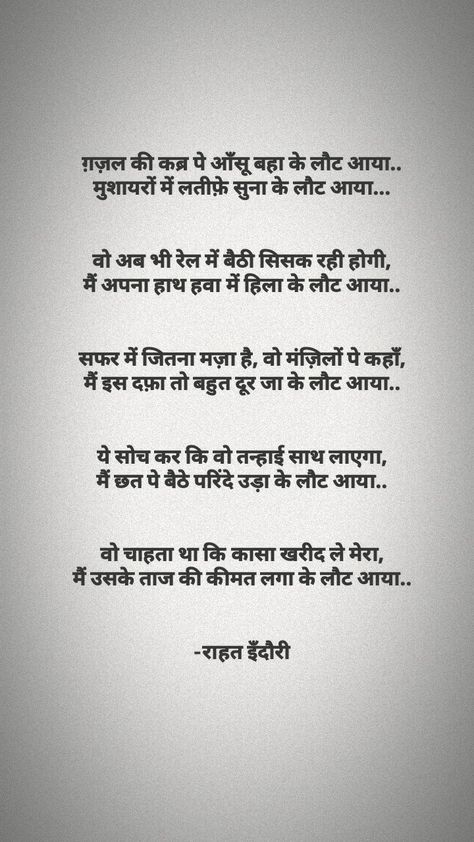 ग़ज़ल की कब्र पे आँसू बहा के लौट आया..
मुशायरों में लतीफ़े सुना के लौट आया...
वो अब भी रेल में बैठी सिसक रही होगी,
मैं अपना हाथ हवा में हिला के लौट आया..
सफर में जितना मज़ा है, वो मंज़िलों पे कहाँ,
मैं इस दफ़ा तो बहुत दूर जा के लौट आया..
ये सोच कर कि वो तन्हाई साथ लाएगा,
मैं छत पे बैठे परिंदे उड़ा के लौट आया..
वो चाहता था कि कासा खरीद ले मेरा,
मैं उसके ताज की कीमत लगा के लौट आया..
-राहत इँदौरी